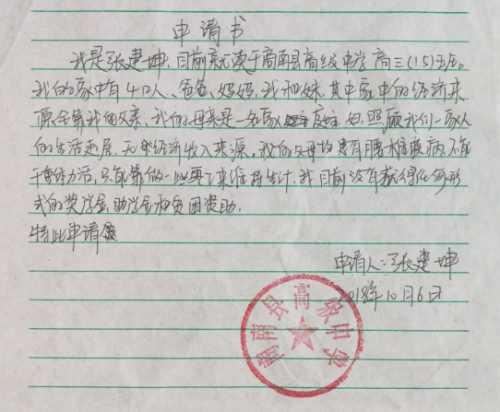 申请书
我是张建坤,目前就读于商南县高级中学高三(15)班。
我的家中有4口人、爸爸、妈妈、我和妹,其中家中的经济来
源全靠我的父亲、我的母亲是一名家庭主妇,照顾我们一家人
的生活起居,无经济收入来源,我的父母均患有腰椎疾病,不能
干重体力活,只能靠做一些零工来维持生计,我目前没有获得任何形
式的奖学金,助学金和贫困资助。
特此申请
申请人:张建坤
2018年10月6日
商南县高级中学